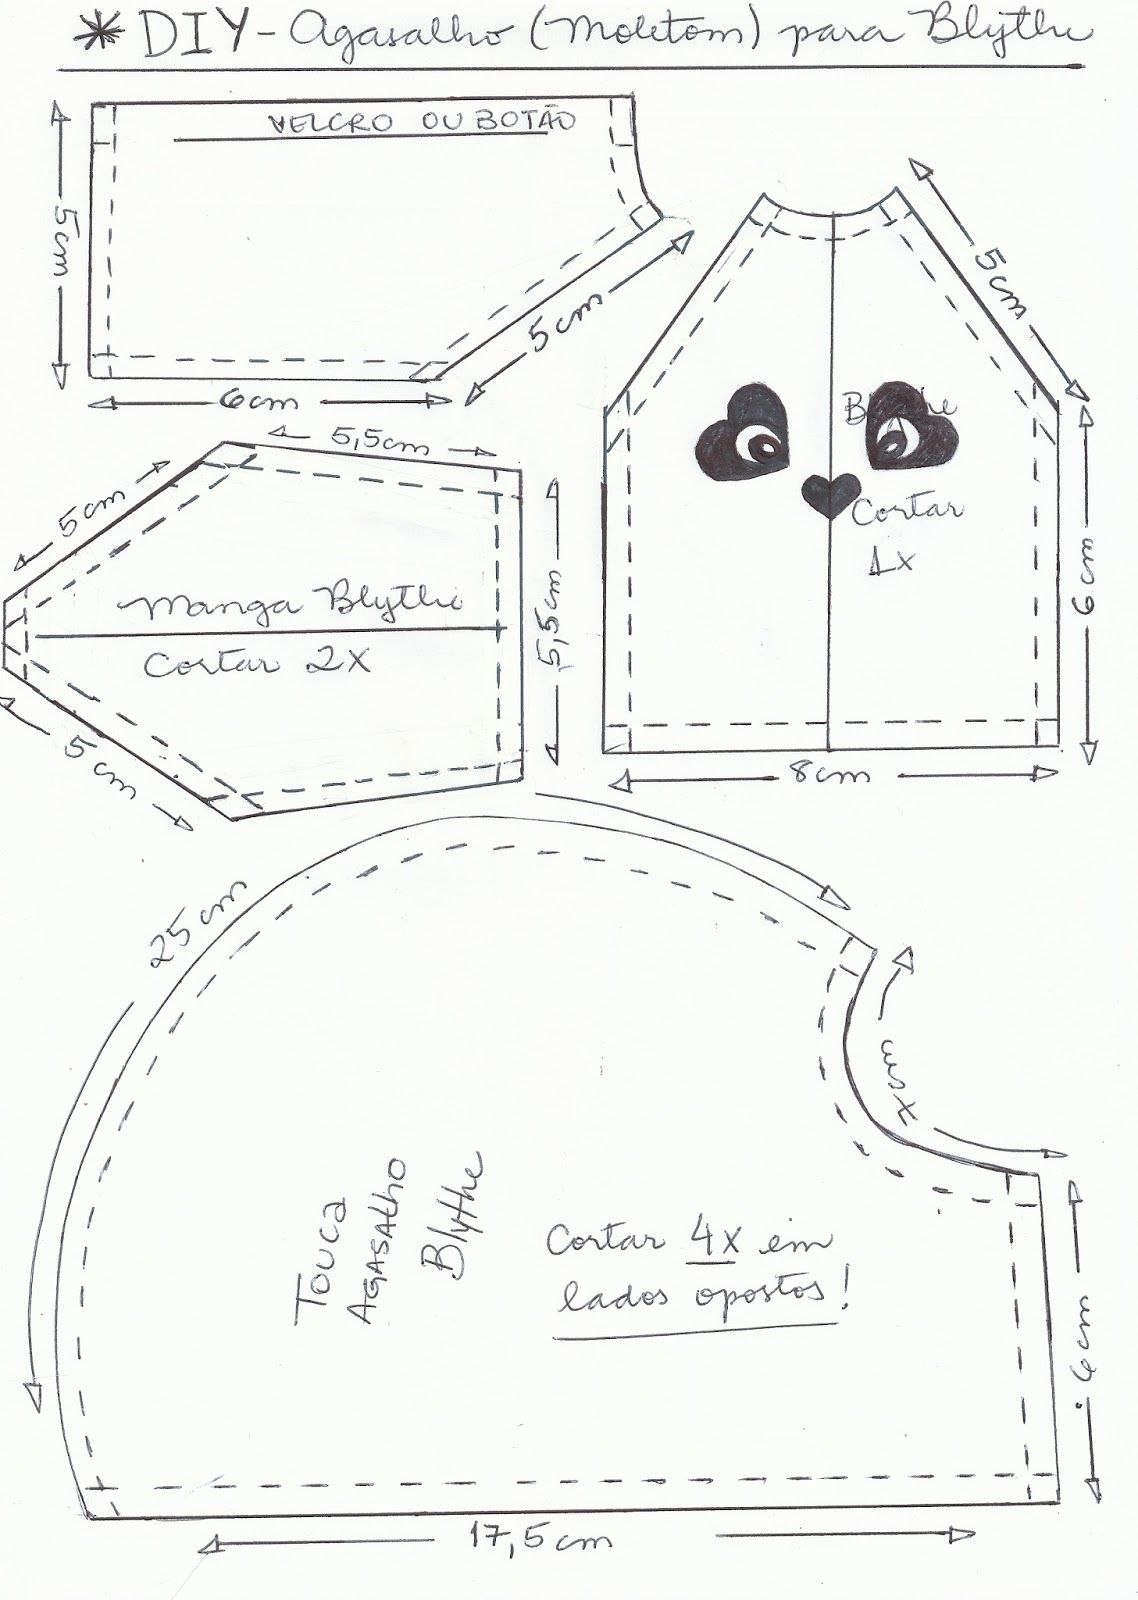 * DIY - Agasalho (Moletom) para Blythe
VELCRO OU BOTÃO
5cm
5cm
6cm
5cm
6cm
8cm
Cortar
1x
5,5cm
5cm
5,5cm
5cm
Manga Blythe
Cortar 2X
25 cm
6cm
17,5cm
Touca
Agasalho
Blythe
Cortar 4x em
lados opostos!